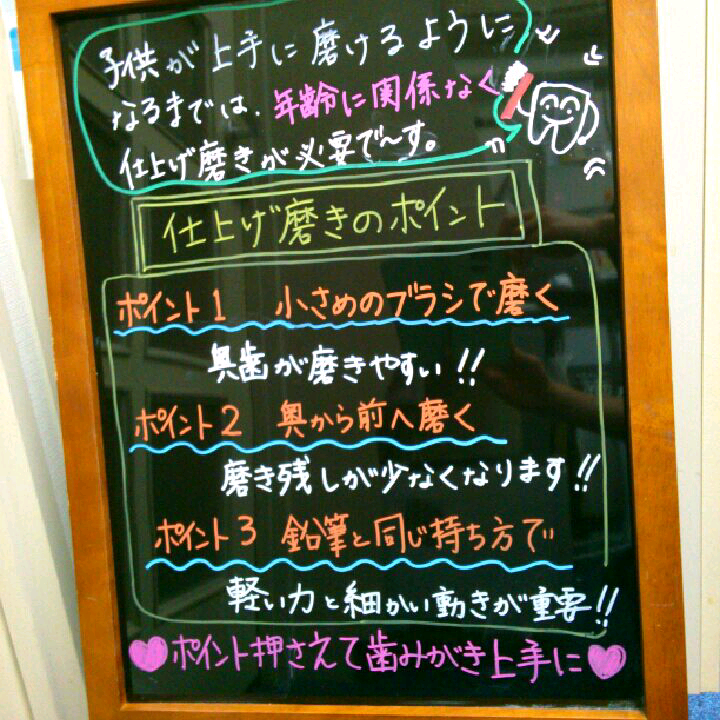 子供が上手に磨けるように
なるまでは、年齢に関係なく
仕上げ磨きが必要で〜す。
仕上げ磨きのポイント
ポイント1 小さめのブラシで磨く
奥歯が磨きやすい!!
ポイント2 奥から前へ磨く
磨き残しが少なくなります!!
ポイント3 鉛筆と同じ持ち方で
軽い力と細かい動きが重要!!
♥ポイント押さえて歯みがき上手に♥